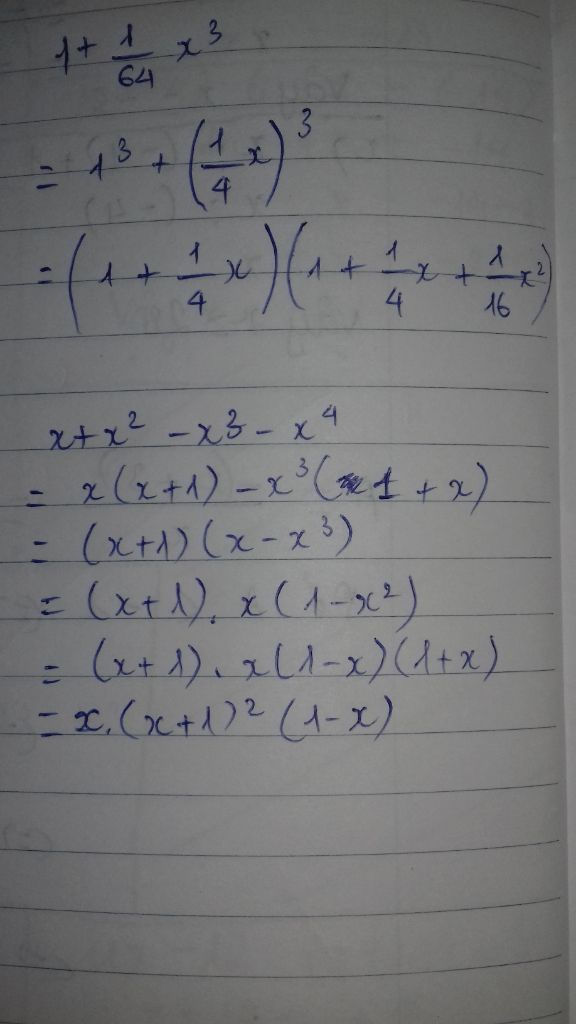 1 + 1/64 x³
= 1³ + (1/4 x)³
= (1 + 1/4 x)(1 + 1/4 x + 1/16 x²)
x + x² - x³ - x⁴
= x(x+1) - x³(1 + x)
= (x+1)(x - x³)
= (x+1). x(1 - x²)
= (x+1). x(1-x)(1+x)
= x.(x+1)² (1-x)